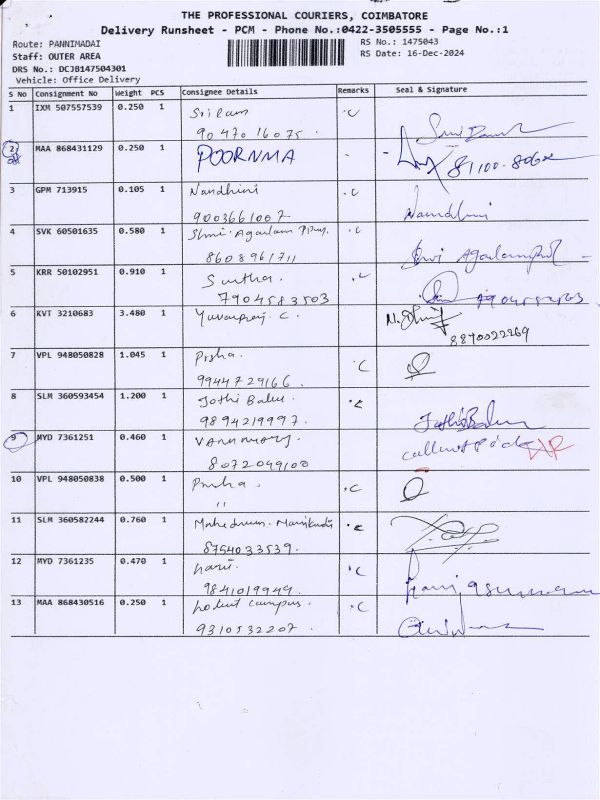 THE PROFESSIONAL COURIERS, COIMBATORE
Delivery Runsheet - PCM - Phone No.:0422-3505555 - Page No.:1
Route: PANNIMADAI
RS No.: 1475043
Staff: OUTER AREA
RS Date: 16-Dec-2024
DRS No.: DCJB147504301
Vehicle: Office Delivery
S No Consignment No Weight PCS Consignee Details Remarks Seal & Signature
1 IXM 507557539 0.250 1 Sriram
90470 16075.
2 MAA 868431129 0.250 1 POORNMA
3 GPM 713915 0.105 1 Nandhini Nandhini
9003661007
4 SVK 60501635 0.580 1 Shri Agaram
8608961711
5 KRR 50102951 0.910 1
7904583503
6 KVT 3210683 3.480 1 Yuvanraj. C.
8870022269
7 VPL 948050828 1.045 1 Prisha.
9944729166.
8 SLM 360593454 1.200 1 Jothi Balu. Jothi Balu
9894219997.
9 MYD 7361251 0.460 1
8072049100
10 VPL 948050838 0.500 1 Prisha.
"
11 SLM 360582244 0.760 1
8754033539.
12 MYD 7361235 0.470 1 hari.
9841019949.
13 MAA 868430516 0.250 1 campus.
9310532207.